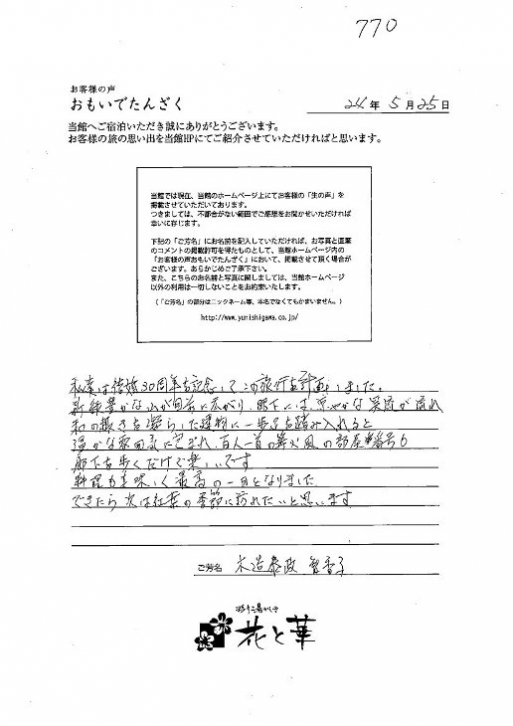 770
お客様の声
おもいでたんざく
24年 5月25日
当館へご宿泊いただき誠にありがとうございます。
お客様の旅の思い出を当館HPにてご紹介させていただければと思います。
当館では現在、当館のホームページ上にてお客様の「生の声」を
掲載させていただいております。
つきましては、不都合がない範囲でご感想をお聞かせいただければ
幸いに存じます。
下記の「ご芳名」にお名前を記入していただければ、お写真と直筆
のコメントの掲載許可を得たものとして、当館ホームページ内の
「お客様の声おもいでたんざく」において、掲載させて頂く場合が
ございます。あらかじめご了承下さい。
また、こちらのお名前と写真に関しましては、当館ホームページ
以外の利用は一切しないことをお約束いたします。
(「ご芳名」の部分はニックネーム等、本名でなくてもかまいません。)
http://www.yunishigawa.co.jp/
私達は結婚30周年を記念してこの旅行を計画しました。
新緑豊かな山が目前に広がり 眼下には、穏やかな渓流が流れ
和の趣きを凝らした建物に一歩足を踏み入れると
温かな雰囲気に包まれ、百人一首の 風の部屋番号も
廊下を歩くだけで楽しいです
料理も美味しく最高の一日となりました
できたら次は紅葉の季節に訪れたいと思います
ご芳名 木造泰政 智香子
花と華